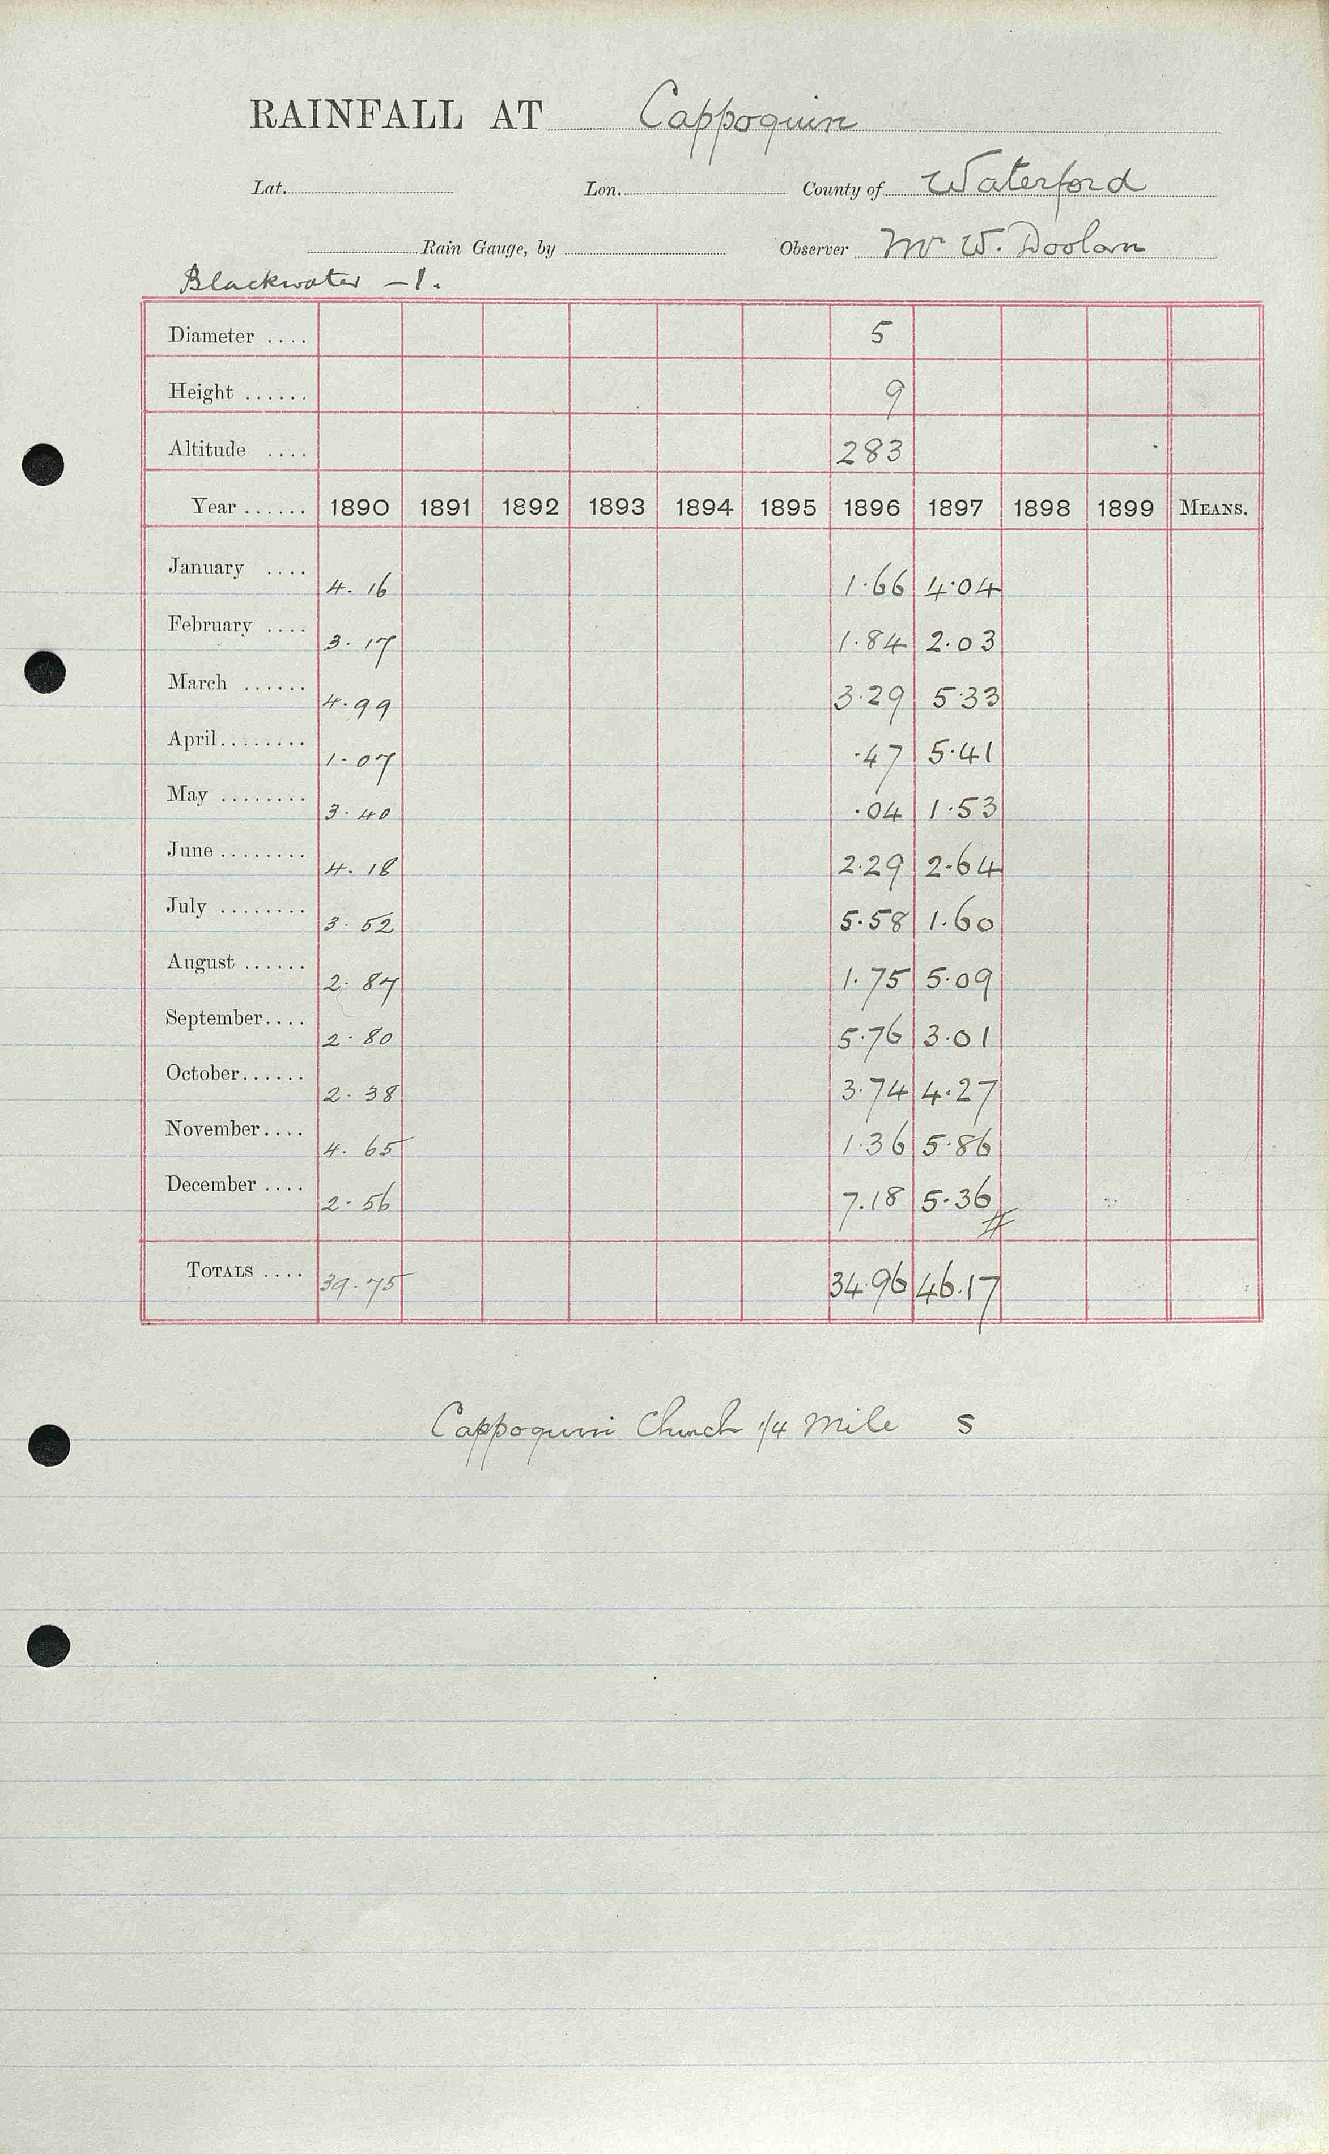 RAINFALL AT Cappoquin
Lat. Lon. County of Waterford
Rain Gauge, by Observer Mr W. Doolan
Blackwater – 1.
Diameter .... 5
Height ...... 9
Altitude .... 283
Year ...... 1890 1891 1892 1893 1894 1895 1896 1897 1898 1899 MEANS.
January .... 4.16 1.66 4.04
February .... 3.17 1.84 2.03
March ...... 4.99 3.29 5.33
April........ 1.07 .47 5.41
May ........ 3.40 .04 1.53
June ........ 4.18 2.29 2.64
July ........ 3.52 5.58 1.60
August ...... 2.87 1.75 5.09
September.... 2.80 5.76 3.01
October...... 2.38 3.74 4.27
November.... 4.65 1.36 5.86
December .... 2.56 7.18 5.36 #
TOTALS .... 39.75 34.96 46.17
Cappoquin Church 1/4 Mile S